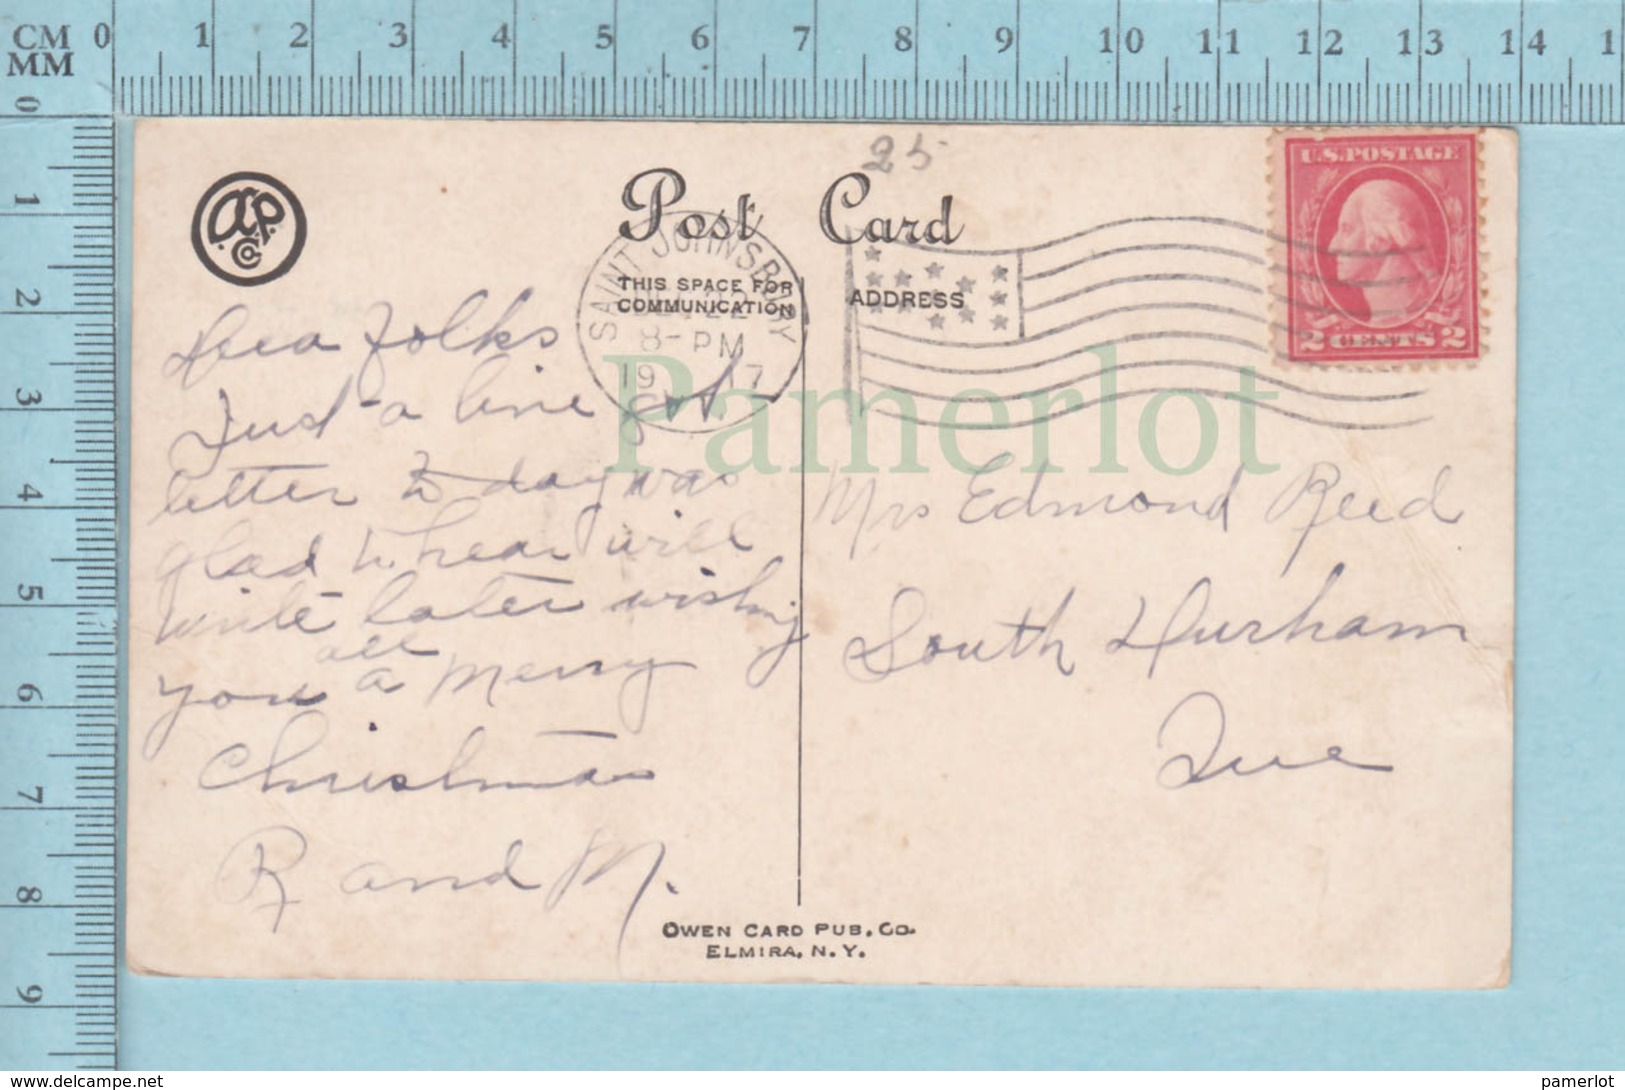 CM 0 1 2 3 4 5 6 7 8 9 10 11 12 13 14 1
MM
0 1 2 3 4 5 6 7 8 9
25
Post Card
U.S. POSTAGE
2 CENTS 2
SAINT JOHNSBURY
22
8-PM
1917
THIS SPACE FOR
COMMUNICATION
ADDRESS
Dear Folks
Just a line got
letter to day was
glad to hear will
write later wishing
you all a Merry
Christmas
R and M.
Mrs Edmond Reed
South Durham
Que
Pamerlot
OWEN CARD PUB. CO.
ELMIRA, N. Y.
www.delcampe.net
pamerlot